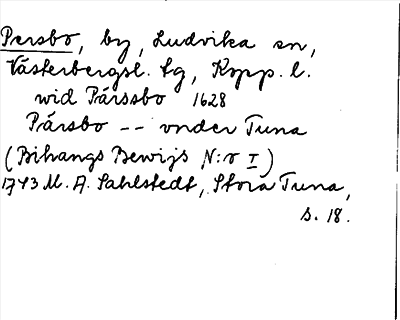 Persbo, by, Ludvika sn,
Västerbergsl. tg, Kopp. l.
wid Pärssbo 1628
Pärsbo -- vnder Tuna
(Bihangs Bewijs N:o I)
1743 M. A. Sahlstedt, Stora Tuna,
s. 18.